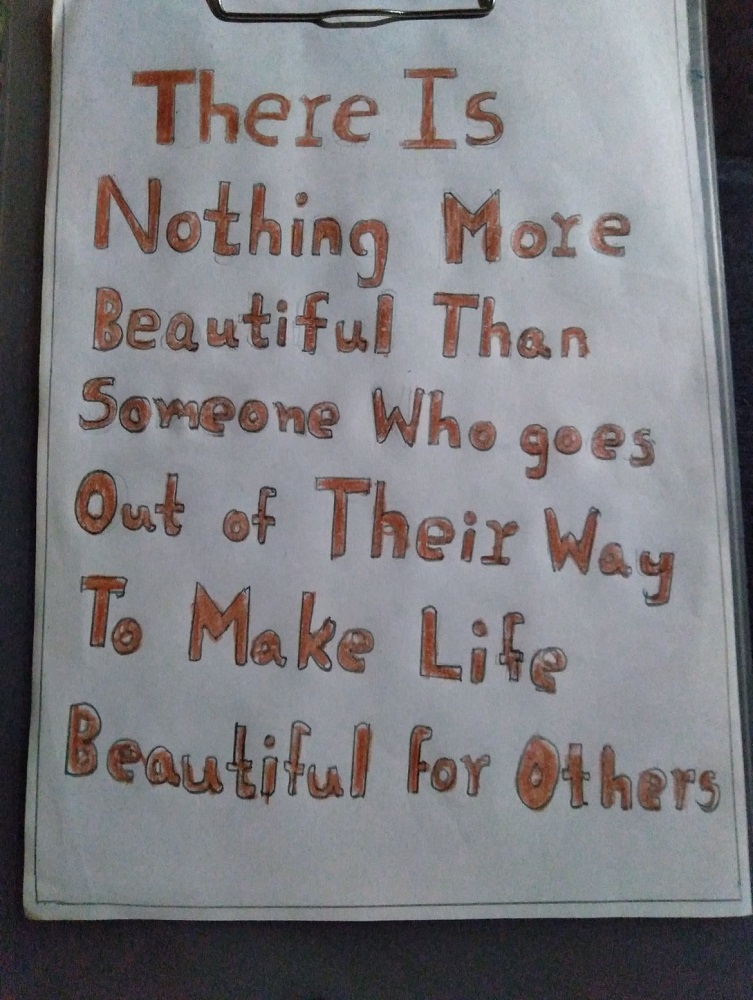 There Is
Nothing More
Beautiful Than
Someone Who goes
Out of Their Way
To Make Life
Beautiful for Others